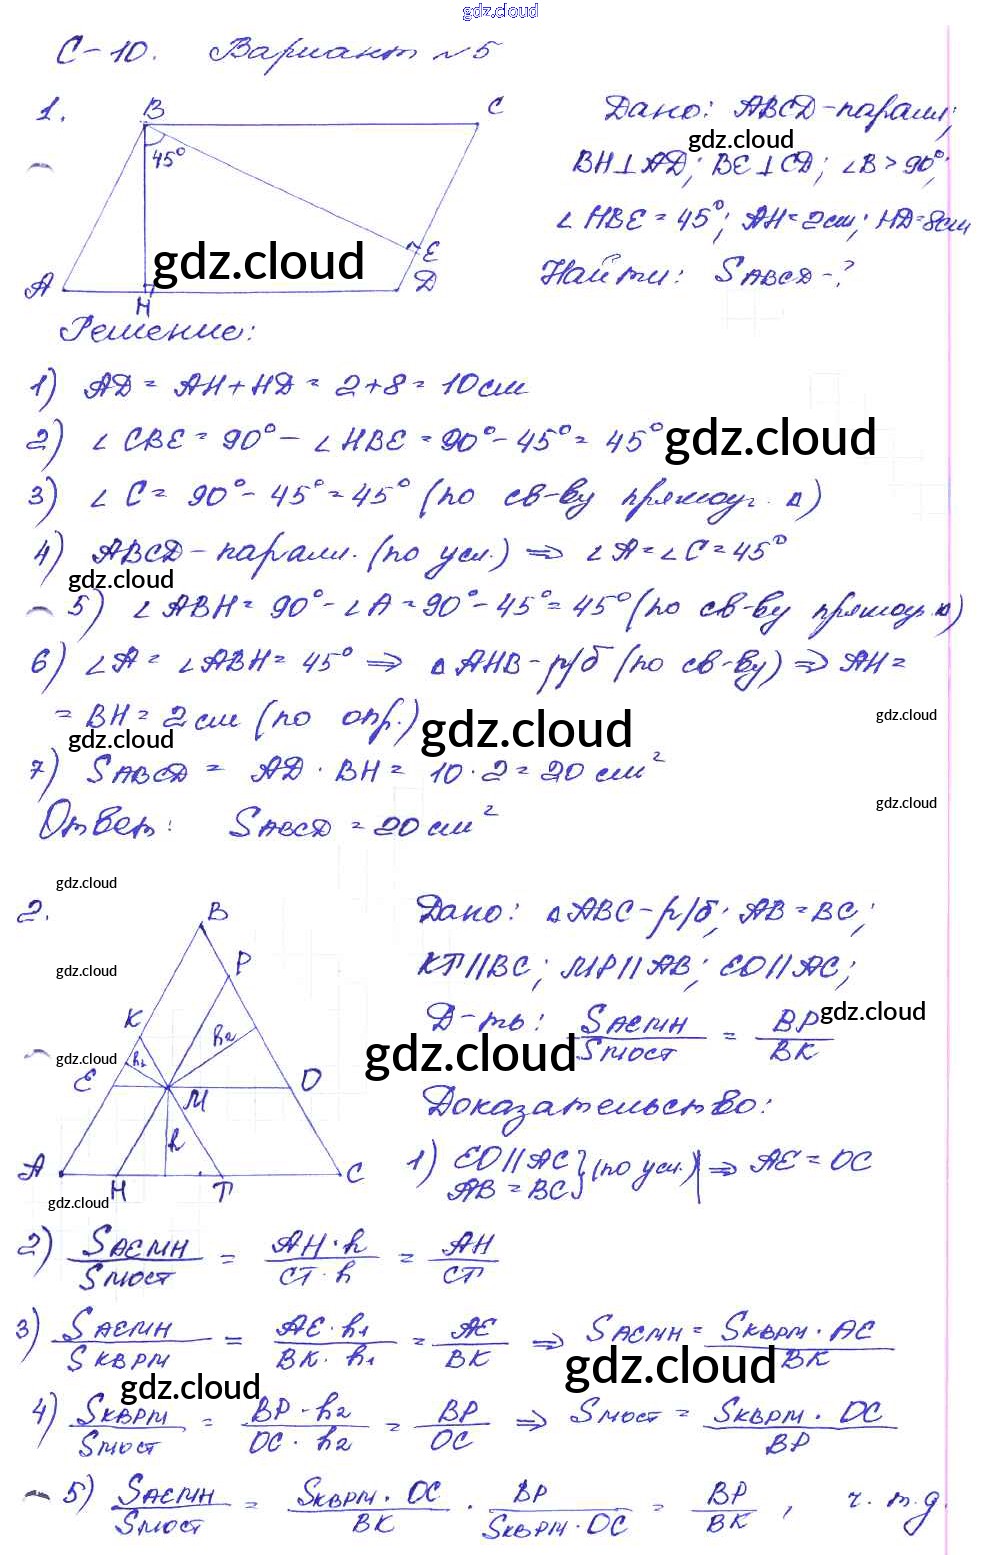 gdz.cloud
С-10. Вариант №5
1.
B C
45°
E
A H D
gdz.cloud
Дано: ABCD-паралл;
gdz.cloud
BH⊥AD; BE⊥CD; ∠B>90°;
∠HBE=45°; AH=2см; HD=8см
Найти: SABCD-?
Решение:
1) AD = AH+HD = 2+8 = 10см
2) ∠CBE = 90° - ∠HBE = 90° - 45° = 45°
gdz.cloud
3) ∠C = 90° - 45° = 45° (по св-ву прямоуг. Δ)
4) ABCD-паралл. (по усл.) ⇒ ∠A=∠C=45°
gdz.cloud
5) ∠ABH = 90° - ∠A = 90° - 45° = 45° (по св-ву прямоуг. Δ)
6) ∠A = ∠ABH = 45° ⇒ ΔAHB - р/б (по св-ву) ⇒ AH =
= BH = 2см (по опр.)
gdz.cloud
gdz.cloud
gdz.cloud
7) SABCD = AD · BH = 10 · 2 = 20 см²
gdz.cloud
Ответ: SABCD = 20 см²
gdz.cloud
2.
B
P
K
h₂
h₁
E M O
h
A H T C
gdz.cloud
gdz.cloud
gdz.cloud
Дано: ΔABC-р/б; AB=BC;
KT||BC; MP||AB; EO||AC;
Д-ть: SAEMH/SMOCT = BP/BK
gdz.cloud
gdz.cloud
Доказательство:
1) EO||AC
AB=BC } (по усл.) ⇒ AE = OC
2) SAEMH/SMOCT = AH·h/CT·h = AH/CT
3) SAEMH/SKBPM = AE·h₁/BK·h₁ = AE/BK ⇒ SAEMH = SKBPM·AE/BK
gdz.cloud
gdz.cloud
4) SKBPM/SMOCT = BP·h₂/OC·h₂ = BP/OC ⇒ SMOCT = SKBPM·OC/BP
5) SAEMH/SMOCT = SKBPM·OC/BK · BP/SKBPM·OC = BP/BK, ч.т.д.